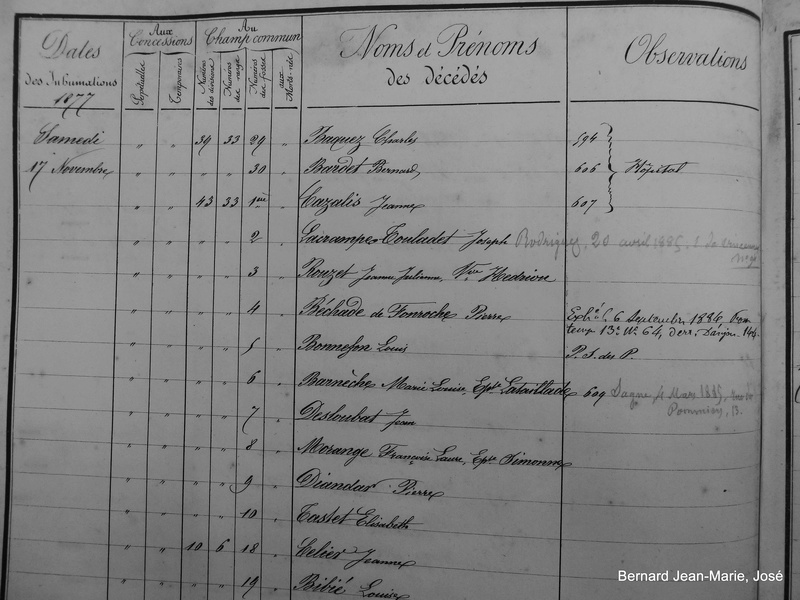 Dates des Inhumations 1877
Aux Concessions
Perpétuelles
Temporaires
Au Champ commun
Numéros des divisions
Numéros des rangs
Numéros des fosses
aux Morts-nés
Noms et Prénoms des décédés
Observations
Samedi " " 39 33 29 " Baquez Charles 594
17 Novembre " " " " 30 " Bardet Bernard, 606 Hôpital
" " 43 33 1ère " Cazalis Jeanne 607
" " " " 2 " Lacrampe-Couladet Joseph Rodrigues, 20 avril 1885,
" " " " 3 " Rouzet Jeanne Julienne, Vve Hedrion
" " " " 4 " Béchade de Fonroche Pierre Exh. 6 Septembre 1884,
temp. 13e No 64,
" " " " 5 " Bonnefon Louis P. S. du P.
" " " " 6 " Barnèche Marie Louise, Epse Lataillade 609 Sagne 4 Mars 1885,
Pommiers, 13.
" " " " 7 " Desloubat Jean
" " " " 8 " Morange Françoise Laure, Epse Simonne
" " " " 9 " Diandar Pierre
" " " " 10 " Tastet Elisabeth
" " 10 6 18 " Celier Jeanne
" " " " 19 " Bibié Louise
Bernard Jean-Marie, José